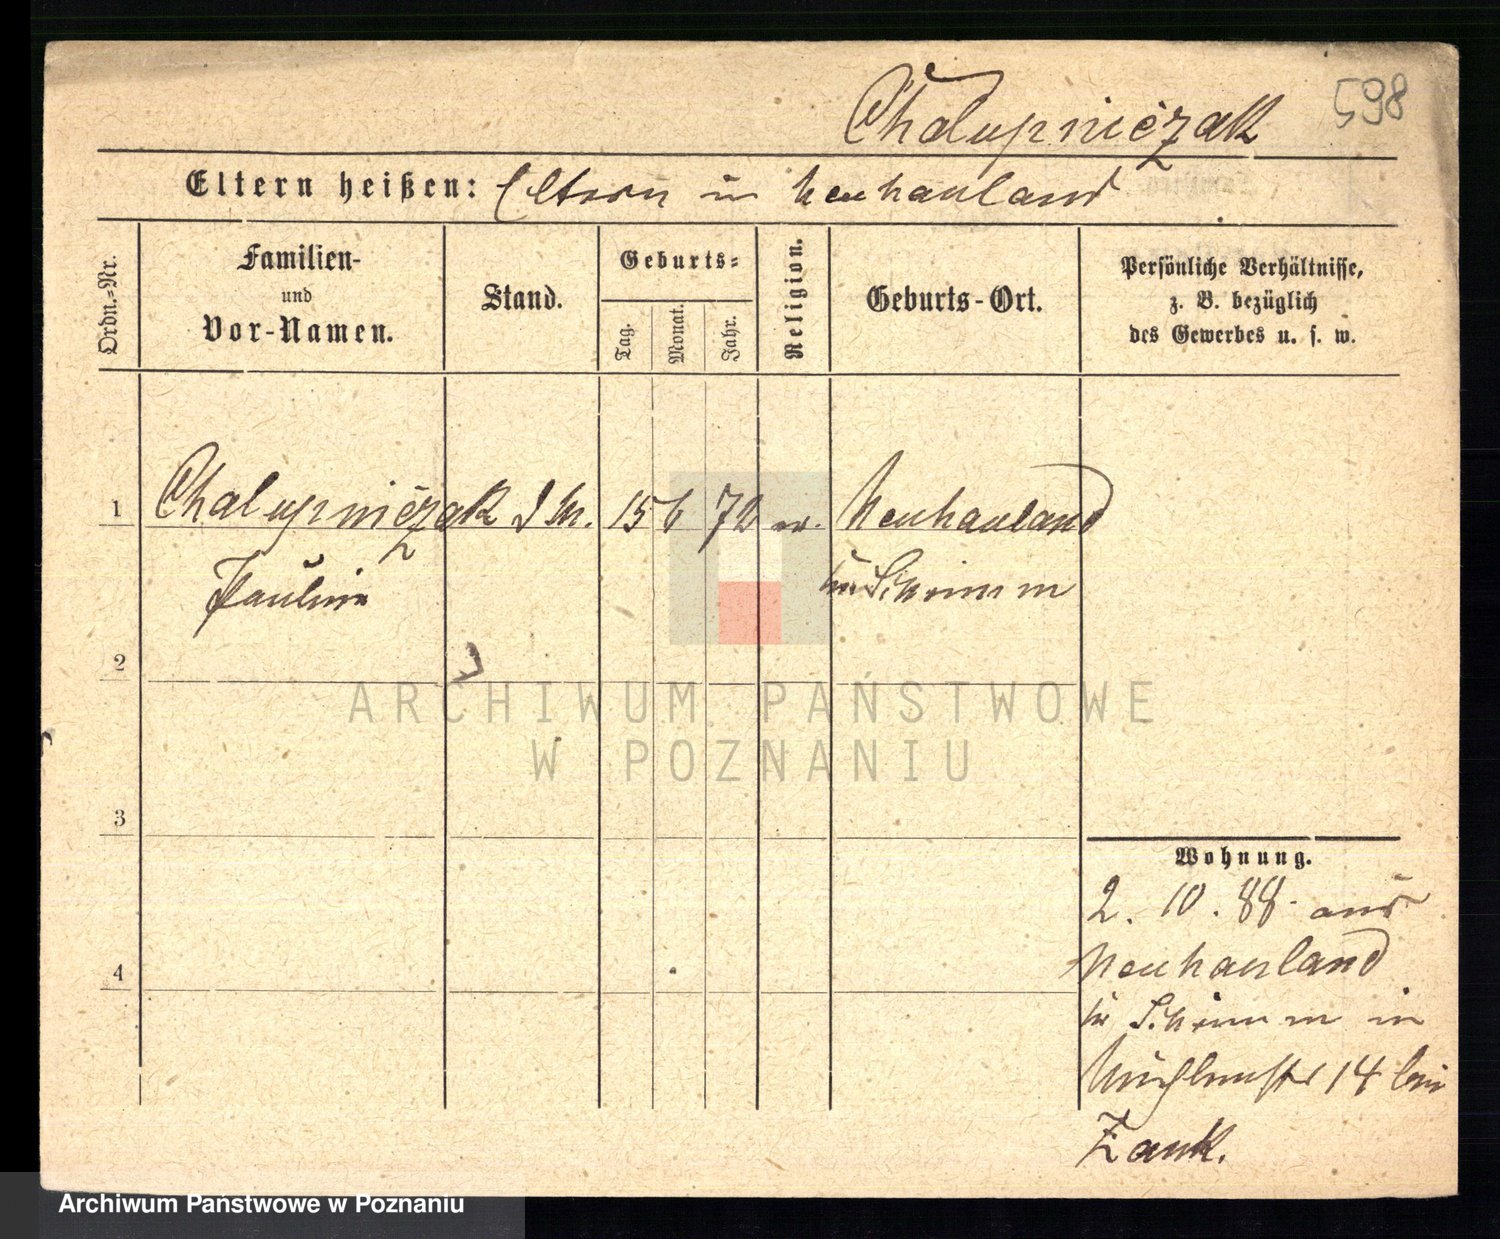 Chalupniczak 598
Eltern heißen: Eltern in Neuhauland
Ordn.-Nr.
Familien-
und
Vor-Namen.
Stand.
Geburts-
Tag.
Monat.
Jahr.
Religion.
Geburts-Ort.
Persönliche Verhältnisse,
z. B. bezüglich
des Gewerbes u. s. w.
1 Chalupniczak 15 6 72 Neuhauland
Pauline Schrimm
2
3
4
Wohnung.
2. 10. 88. aus
Neuhauland
Schrimm in
Mühlenstr 14 bei
Zank.
ARCHIWUM PAŃSTWOWE
W POZNANIU
Archiwum Państwowe w Poznaniu